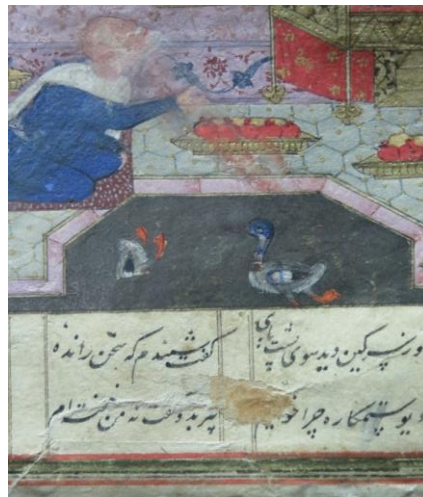 وز سر کین دید سوی پشت پای گفت شنیدم که سخن رانده
دیو ستمکاره چرا خوانیم پیر بدو گفت نه من خفته ام